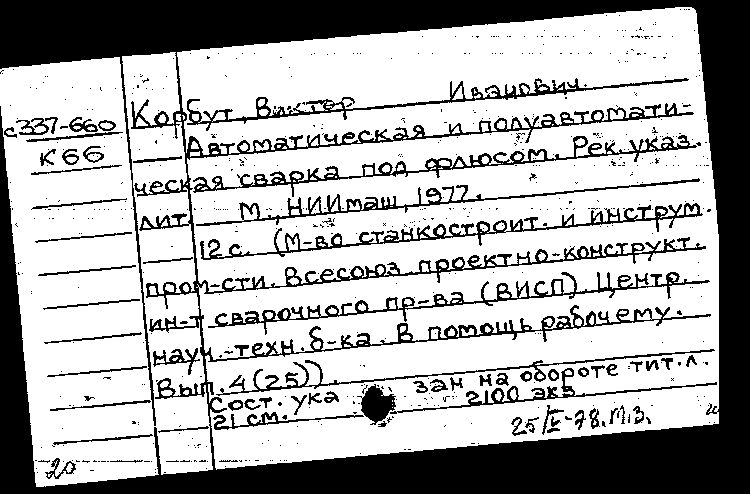 Корбут, Виктор Иванович.
с337-660
К66
Автоматическая и полуавтомати-
ческая сварка под флюсом. Рек. указ.
лит. М., НИИмаш, 1977.
12 с. (М-во станкостроит. и инструм.
пром-сти. Всесоюз. проектно-конструкт.
ин-т сварочного пр-ва (ВИСП). Центр.
науч.-техн. б-ка. В помощь рабочему.
Вып. 4(25)).
Сост. ука зан на обороте тит. л.
21 см. 2100 экз.
25/V-78. М.З.
20